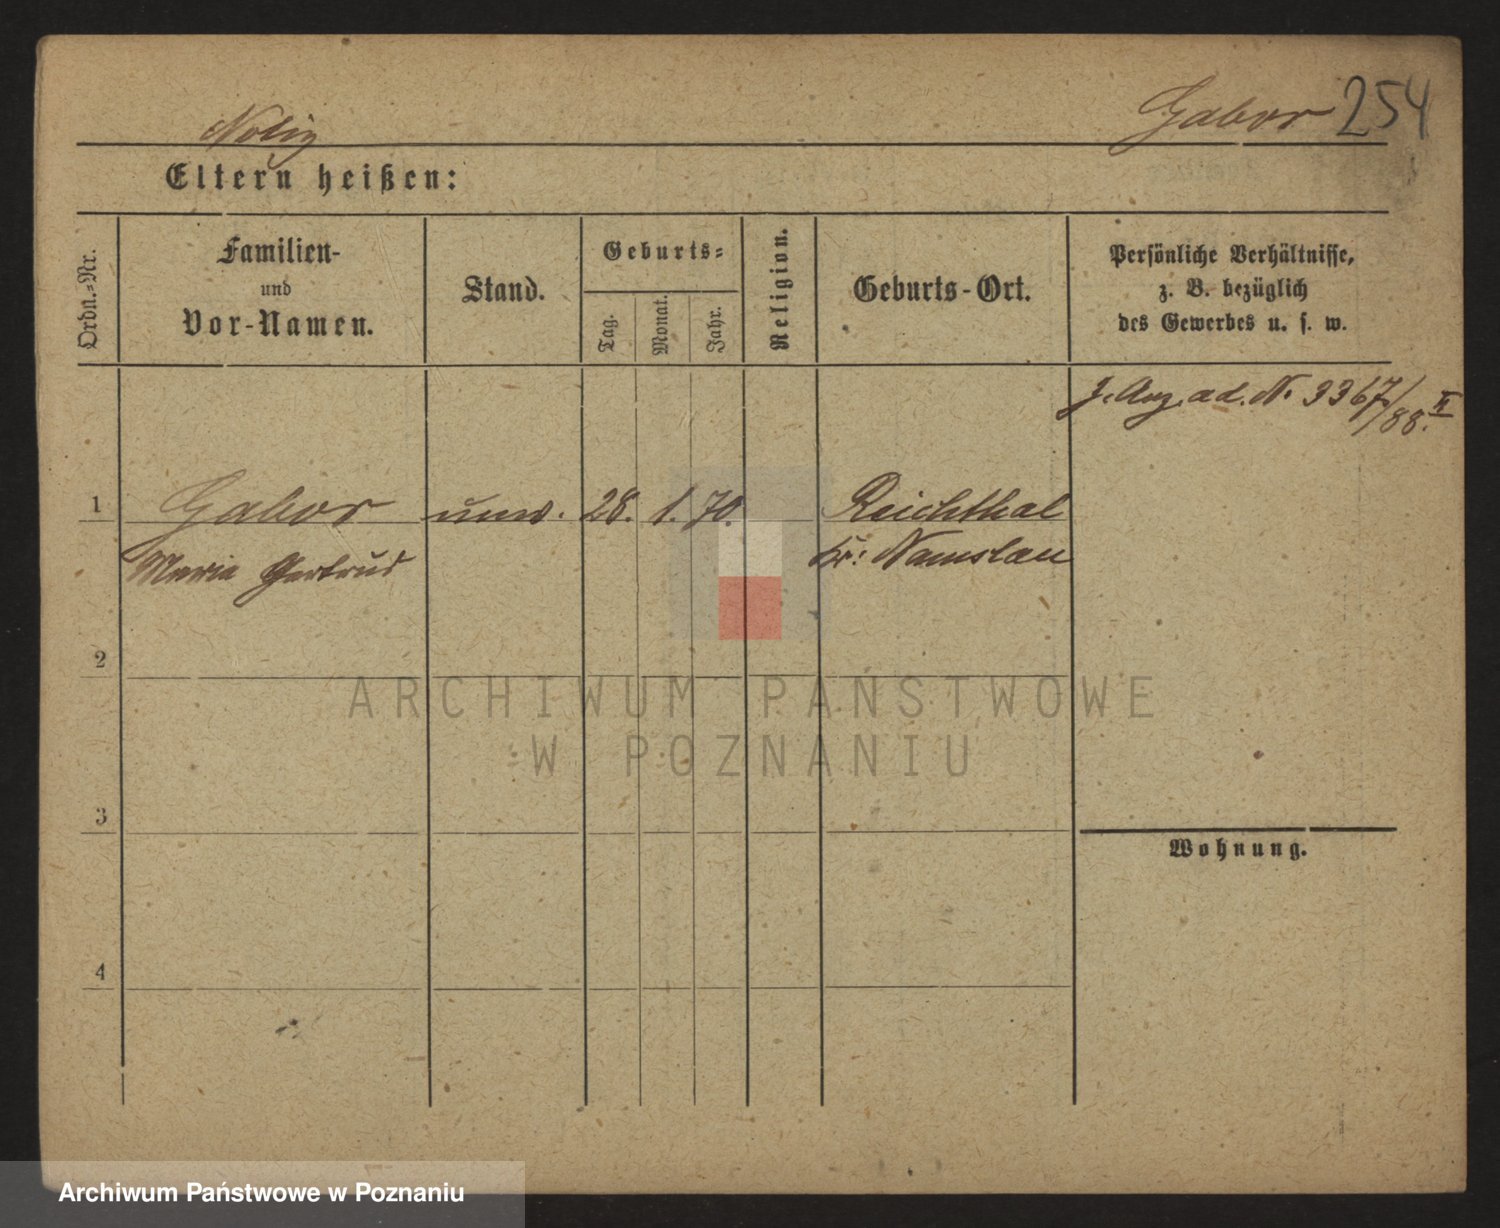 Notiz
Gabor 254
Eltern heißen:
Ordn.=Nr.
Familien-
und
Vor-Namen.
Stand.
Geburts=
Tag.
Monat.
Jahr.
Religion.
Geburts-Ort.
Persönliche Verhältnisse,
z. B. bezüglich
des Gewerbes u. s. w.
J. Anz. ad. N. 3367/88. II
1 Gabor unv. 28. 1. 70. Reichthal
Maria Gertrud Kr: Namslau
2
3
4
Wohnung.
ARCHIWUM PAŃSTWOWE
W POZNANIU
Archiwum Państwowe w Poznaniu